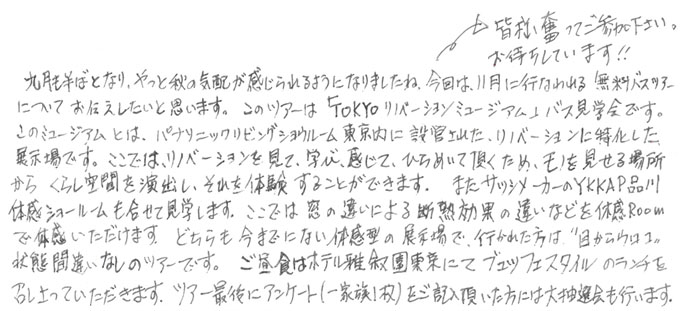 皆様、奮ってご参加下さい。
お待ちしています!!
九月も半ばとなり、やっと秋の気配が感じられるようになりましたね。今回は、11月に行なわれる無料バスツアー
についてお伝えしたいと思います。このツアーは「TOKYOリノベーションミュージアム」バス見学会です。
このミュージアムとは、パナソニックリビングショウルーム東京内に設営された、リノベーションに特化した
展示場です。ここでは、リノベーションを見て、学び、感じて、ひらめいて頂くため、モノを見せる場所
から くらし空間を演出し、それを体験することができます。 またサッシメーカーのYKKAP品川
体感ショールームも合せて見学します。ここでは窓の違いによる断熱効果の違いなどを体感Room
で体感いただけます。どちらも今までにない体感型の展示場で、行かれた方は、"目からウロコ"
状態間違いなしのツアーです。 ご昼食はホテル雅叙園東京にてブュッフェスタイルのランチを
召し上っていただきます。ツアー最後にアンケート(一家族1枚)をご記入頂いた方には大抽選会も行います。